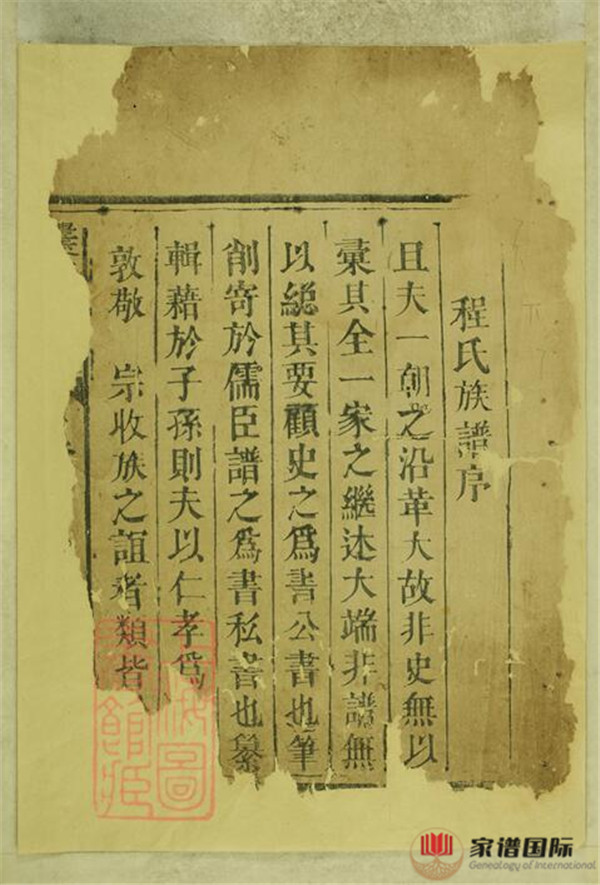 程氏族譜序
且夫一朝之沿革大故非史無以
彙其全一家之繼述大端非譜無
以總其要顧史之爲書公書也筆
削寄於儒臣譜之爲書私書也纂
輯藉於子孫則夫以仁孝爲
敦敬 宗收族之誼者類皆
家谱国际
Genealogy of International